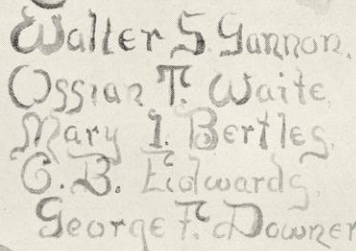 Walter S. Gannon.
Ossian T. Waite
Mary I. Bertles
C. B. Eidwards.
George F. Downer